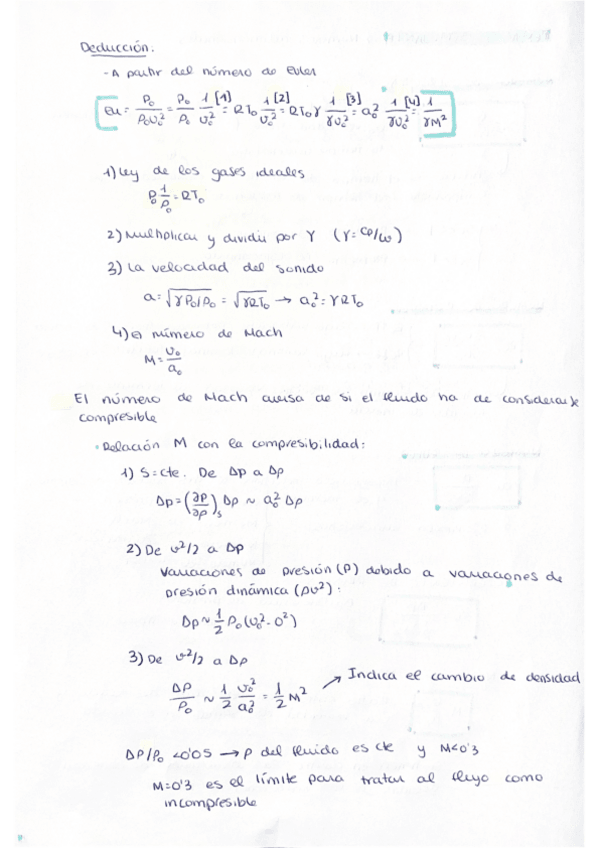 Deducción.
- A partir del número de Euler
Eu = P₀/ρ₀v₀² = P₀/ρ₀ 1/v₀² [1]= RT₀ 1/v₀² [2]= RT₀γ 1/γv₀² [3]= a₀² 1/γv₀² [4]= 1/γM²
1) Ley de los gases ideales
P₀ 1/ρ₀ = RT₀
2) Multiplicar y dividir por γ (γ = cp/cv)
3) La velocidad del sonido
a = √γP₀/ρ₀ = √γRT₀ → a₀² = γRT₀
4) El número de Mach
M = v₀/a₀
El número de Mach avisa de si el fluido ha de considerarse
compresible
• Relación M con la compresibilidad:
1) S = cte. De Δp a Δρ
Δp = (∂p/∂ρ)s Δρ ~ a₀² Δρ
2) De v²/2 a Δp
Variaciones de presión (P) debido a variaciones de
presión dinámica (ρv²):
Δp ~ 1/2 ρ₀ (v₀² - 0²)
3) De v²/2 a Δρ
Δρ/ρ₀ ~ 1/2 v₀²/a₀² = 1/2 M² ↗ Indica el cambio de densidad
Δρ/ρ₀ < 0'05 → ρ del fluido es cte y M < 0'3
M = 0'3 es el límite para tratar al flujo como
incompresible